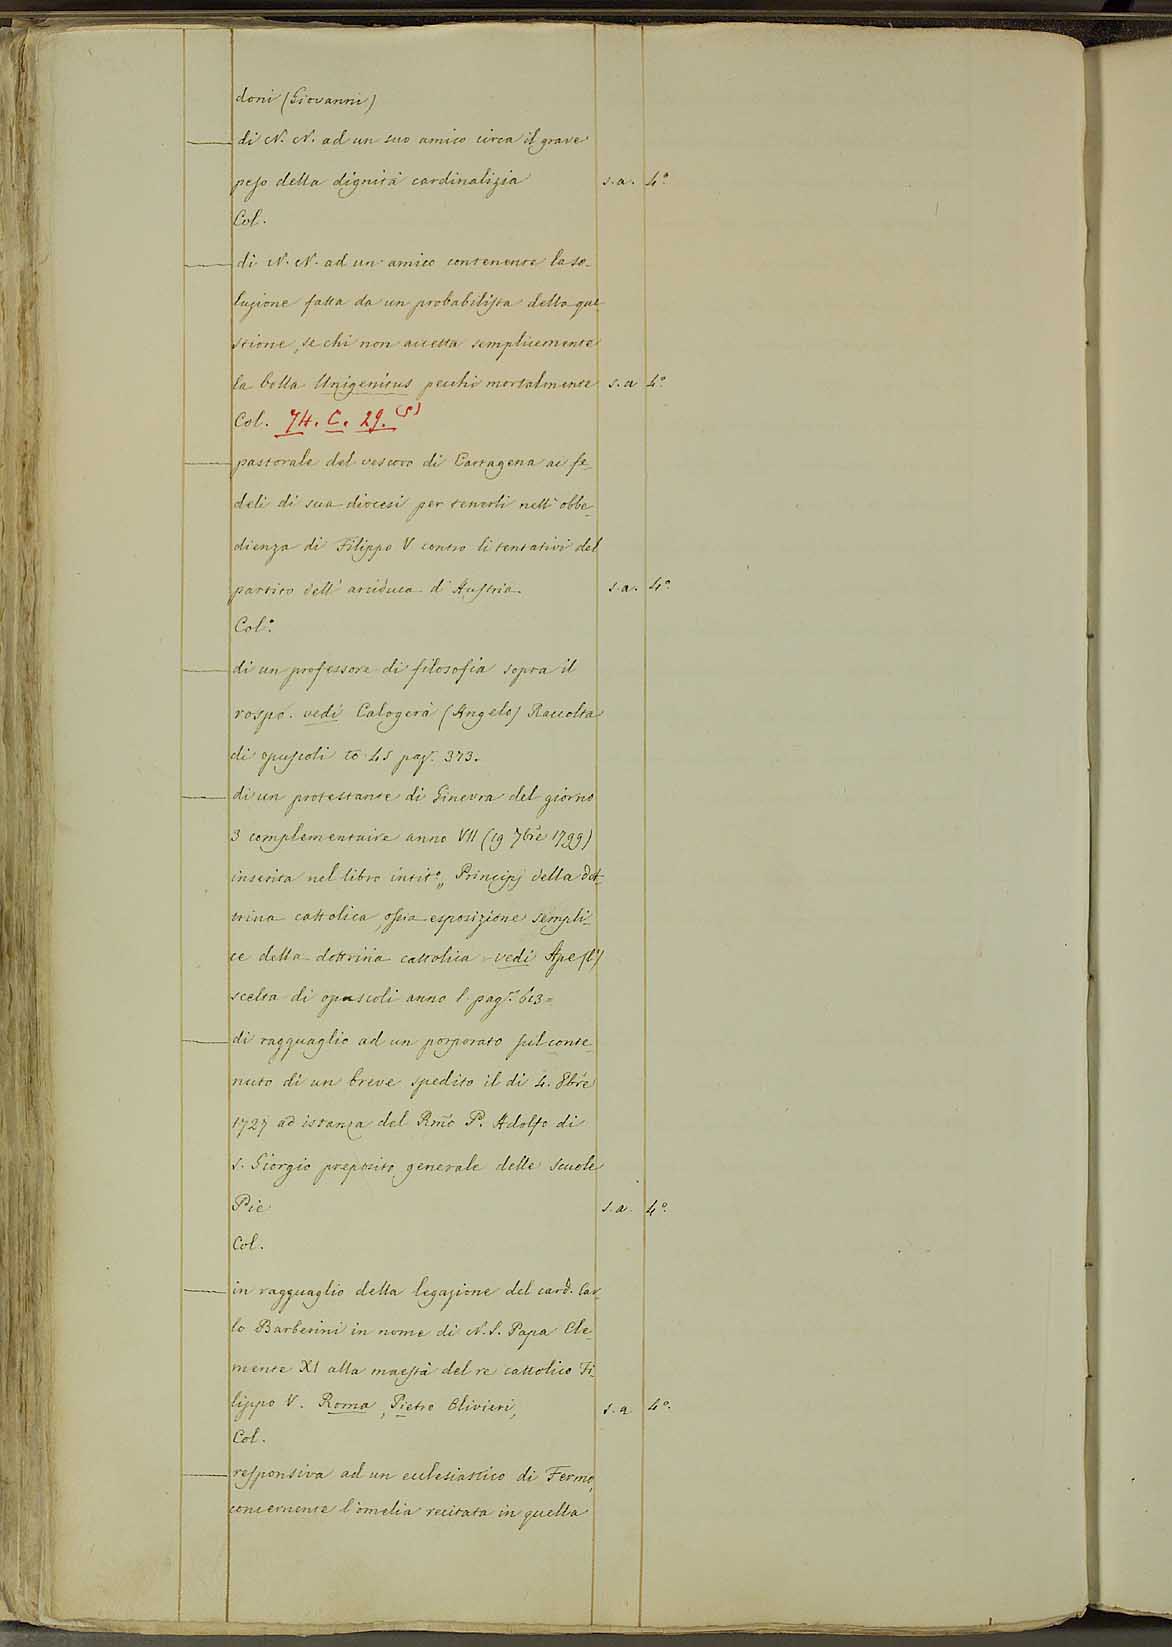 doni (Giovanni)
— di N. N. ad un suo amico circa il grave
peso della dignità cardinalizia s. a. 4.°
Col.
— di N. N. ad un amico contenente la so-
luzione fatta da un probabilista della que-
stione, se chi non accetta semplicemente
la bolla Unigenitus pecchi mortalmente s. a 4.°
Col. 74. C. 29. (5)
— pastorale del vescovo di Cartagena ai fe-
deli di sua diocesi per tenerli nell' obbe-
dienza di Filippo V contro li tentativi del
partito dell' arciduca d'Austria. s. a. 4.°
Col.°
— di un professore di filosofia sopra il
rospo. vedi Calogerà (Angelo) Raccolta
di opuscoli to 45 pag. 373.
— di un protestante di Ginevra del giorno
3 complementaire anno VII (19 7bre 1799)
inserita nel libro intit.° „ Principj della dot-
trina cattolica, ossia esposizione sempli-
ce della dottrina cattolica. vedi Ape (l')
scelta di opuscoli anno 1. pag. 613.
— di ragguaglio ad un porporato sul conte-
nuto di un breve spedito il di 4. 8bre
1727 ad istanza del Rmo P. Adolfo di
S. Giorgio preposito generale delle scuole
Pie s. a. 4.°
Col.
— in ragguaglio della legazione del card. Car-
lo Barberini in nome di N. S. Papa Cle-
mente XI alla maestà del re cattolico Fi-
lippo V. Roma, Pietro Olivieri, s. a 4.°
Col.
— responsiva ad un ecclesiastico di Fermo,
concernente l'omelia recitata in quella